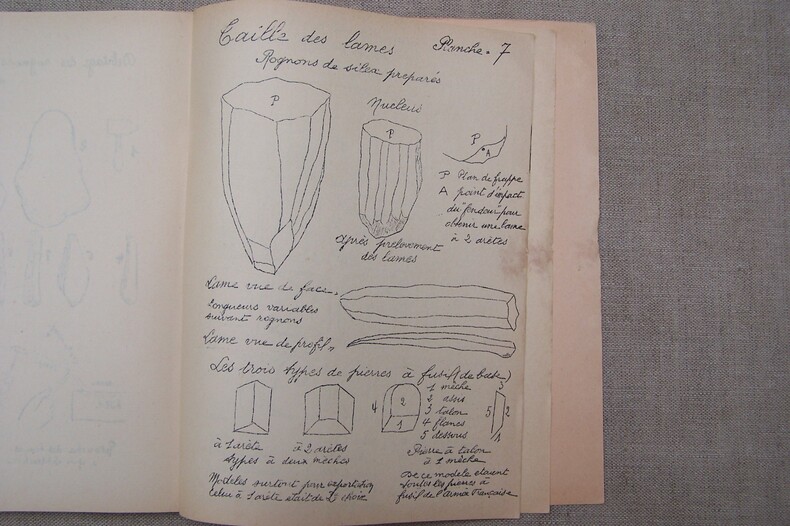 Taille des lames Planche. 7
Rognons de silex preparés
P
Nucleus
P
P
A
P Plan de frappe
A point d'impact
du "fendoir" pour
obtenir une lame
à 2 arètes
après prelevement
des lames
Lame vue de face.
Longueurs variables
suivant rognons
Lame vue de profil.
Les trois types de pierres à fusil (de base)
4
2
1
1 mêche
2 assis
3 talon
4 flancs
5 dessous
3
5 2
1
à 1 arète
à 2 arètes
types à deux mêches
Pierre à talon
à 1 mêche
Modeles surtout pour exportation
celui à 1 arète etait de 2e choix
De ce modele etaient
toutes les pierres à
fusil de l'armée Française